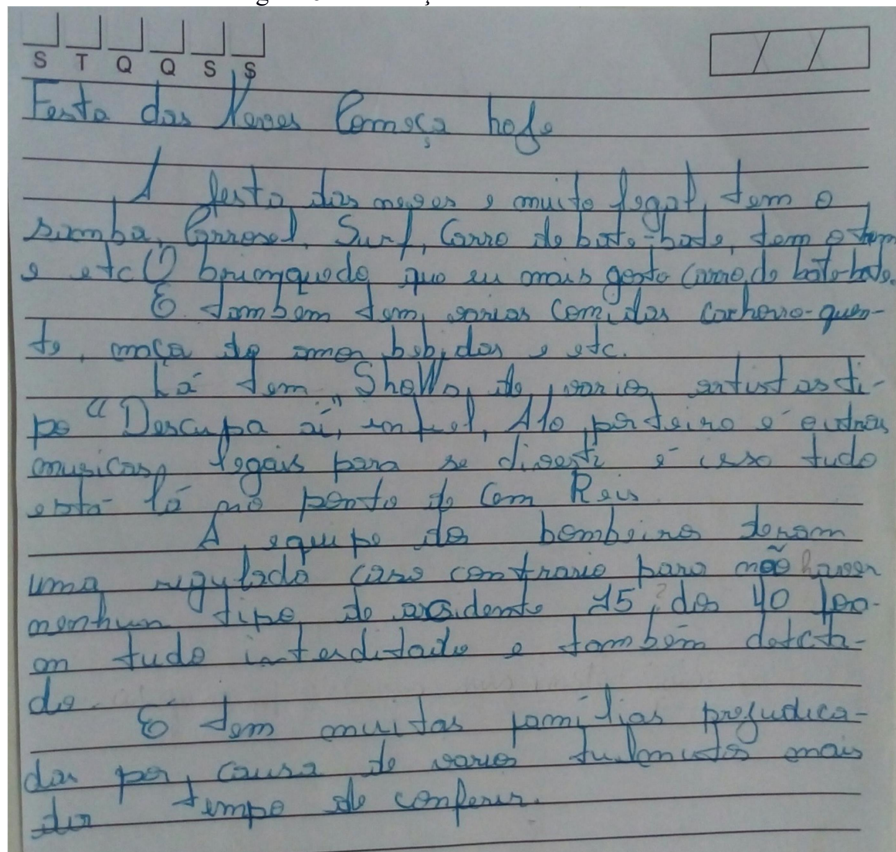 S T Q Q S S
Festa das Neves Começa hoje
A festa das neves e muito legal, tem o
samba, Carrosel, Surf, Carro de bate-bate, tem o trem
e etc O brinquedo que eu mais gosto carro de bate-bate.
E tambem tem varias comidas cachorro-quen-
te, maça do amor bebidas e etc.
Lá tem Shows de varios artistas ti-
po "Descupa aí", infiel, Alo porteiro e outras
musicas legais para se diverti e isso tudo
está lá no ponto de Cem Reis
A equipe dos bombeiros deram
uma regulada caso contrario para não haver
nenhum tipo de acidente 15 dos 40
tudo interditado e também
do.
E tem muitas famílias prejudica-
das por causa de varios mais
der tempo de conferir.